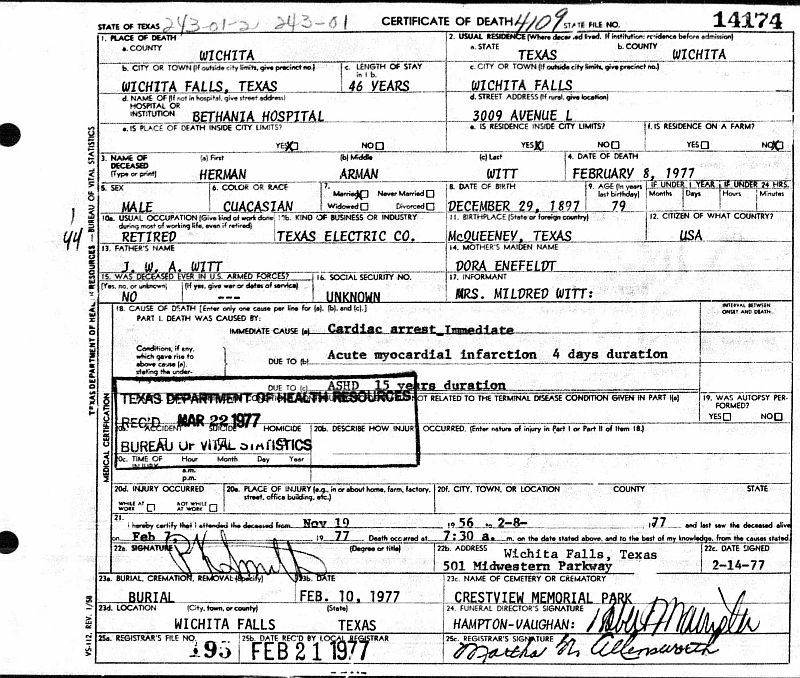 STATE OF TEXAS 243-01-2 243-01 CERTIFICATE OF DEATH 4109 STATE FILE NO. 14174
1. PLACE OF DEATH 2. USUAL RESIDENCE (Where deceased lived. If institution: residence before admission)
a. COUNTY a. STATE b. COUNTY
WICHITA TEXAS WICHITA
b. CITY OR TOWN (If outside city limits, give precinct no.) c. LENGTH OF STAY in 1 b. c. CITY OR TOWN (If outside city limits, give precinct no.)
WICHITA FALLS, TEXAS 46 YEARS WICHITA FALLS
d. NAME OF (If not in hospital, give street address) HOSPITAL OR INSTITUTION d. STREET ADDRESS (If rural, give location)
BETHANIA HOSPITAL 3009 AVENUE L
e. IS PLACE OF DEATH INSIDE CITY LIMITS? e. IS RESIDENCE INSIDE CITY LIMITS? f. IS RESIDENCE ON A FARM?
YES X NO YES X NO YES NO X
3. NAME OF DECEASED (Type or print) (a) First (b) Middle (c) Last 4. DATE OF DEATH
HERMAN ARMAN WITT FEBRUARY 8, 1977
5. SEX 6. COLOR OR RACE 7. Married X Never Married Widowed Divorced 8. DATE OF BIRTH 9. AGE (In years last birthday) IF UNDER 1 YEAR Months Days IF UNDER 24 HRS. Hours Minutes
MALE CUACASIAN DECEMBER 29, 1897 79
10a. USUAL OCCUPATION (Give kind of work done during most of working life, even if retired) 10b. KIND OF BUSINESS OR INDUSTRY 11. BIRTHPLACE (State or foreign country) 12. CITIZEN OF WHAT COUNTRY?
RETIRED TEXAS ELECTRIC CO. McQUEENEY, TEXAS USA
13. FATHER'S NAME 14. MOTHER'S MAIDEN NAME
J. W. A. WITT DORA ENEFELDT
15. WAS DECEASED EVER IN U.S. ARMED FORCES? 16. SOCIAL SECURITY NO. 17. INFORMANT
(Yes, no, or unknown) (If yes, give war or dates of service)
NO --- UNKNOWN MRS. MILDRED WITT:
18. CAUSE OF DEATH [Enter only one cause per line for (a), (b), and (c).] INTERVAL BETWEEN ONSET AND DEATH
PART I. DEATH WAS CAUSED BY:
IMMEDIATE CAUSE (a) Cardiac arrest Immediate
Conditions, if any, which gave rise to above cause (a), stating the under-
DUE TO (b) Acute myocardial infarction 4 days duration
DUE TO (c) ASHD 15 years duration
NOT RELATED TO THE TERMINAL DISEASE CONDITION GIVEN IN PART I(a) 19. WAS AUTOPSY PERFORMED?
YES NO
TEXAS DEPARTMENT OF HEALTH RESOURCES
REC'D MAR 22 1977
BUREAU OF VITAL STATISTICS
20a. ACCIDENT SUICIDE HOMICIDE 20b. DESCRIBE HOW INJURY OCCURRED. (Enter nature of injury in Part I or Part II of Item 18.)
20c. TIME OF INJURY Hour Month Day Year
a.m.
p.m.
20d. INJURY OCCURRED 20e. PLACE OF INJURY (e.g., in or about home, farm, factory, street, office building, etc.) 20f. CITY, TOWN, OR LOCATION COUNTY STATE
WHILE AT WORK NOT WHILE AT WORK
21. I hereby certify that I attended the deceased from Nov 19 1956 to 2-8- 1977 and last saw the deceased alive
on Feb 7, 1977 Death occurred at 7:30 a m. on the date stated above, and to the best of my knowledge, from the causes stated.
22a. SIGNATURE (Degree or title) 22b. ADDRESS 22c. DATE SIGNED
Smith Wichita Falls, Texas
501 Midwestern Parkway 2-14-77
23a. BURIAL, CREMATION, REMOVAL (Specify) 23b. DATE 23c. NAME OF CEMETERY OR CREMATORY
BURIAL FEB. 10, 1977 CRESTVIEW MEMORIAL PARK
23d. LOCATION (City, town, or county) (State) 24. FUNERAL DIRECTOR'S SIGNATURE
WICHITA FALLS TEXAS HAMPTON-VAUGHAN:
25a. REGISTRAR'S FILE NO. 25b. DATE REC'D BY LOCAL REGISTRAR 25c. REGISTRAR'S SIGNATURE
195 FEB 21 1977 Martha N. Allensworth
TEXAS DEPARTMENT OF HEALTH RESOURCES — BUREAU OF VITAL STATISTICS
MEDICAL CERTIFICATION
VS-112, REV. 1/58
1
44